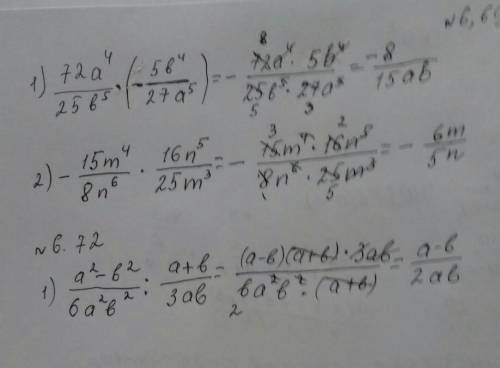 №6,69
1) 72a⁴/25b⁵ · (-5b⁴/27a⁵) = - 72a⁴ · 5b⁴/25b⁵ · 27a⁵ = -8/15ab
2) - 15m⁴/8n⁶ · 16n⁵/25m³ = - 15m⁴ · 16n⁵/8n⁶ · 25m³ = - 6m/5n
№6.72
1) a²-b²/6a²b² : a+b/3ab = (a-b)(a+b) · 3ab/6a²b² · (a+b) = a-b/2ab